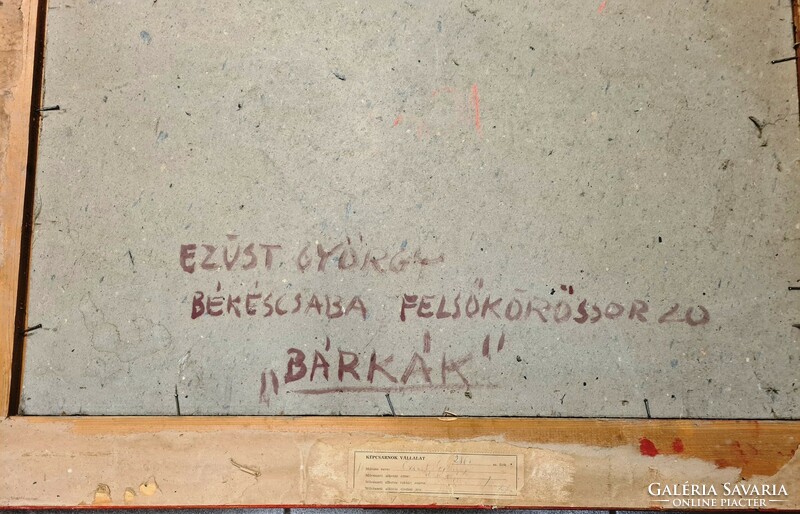 EZÜST GYÖRGY
BÉKÉSCSABA FELSŐKÖRÖSSOR 20
„BÁRKÁK”
KÉPCSARNOK VÁLLALAT
GALÉRIA SAVARIA
ONLINE PIACTER